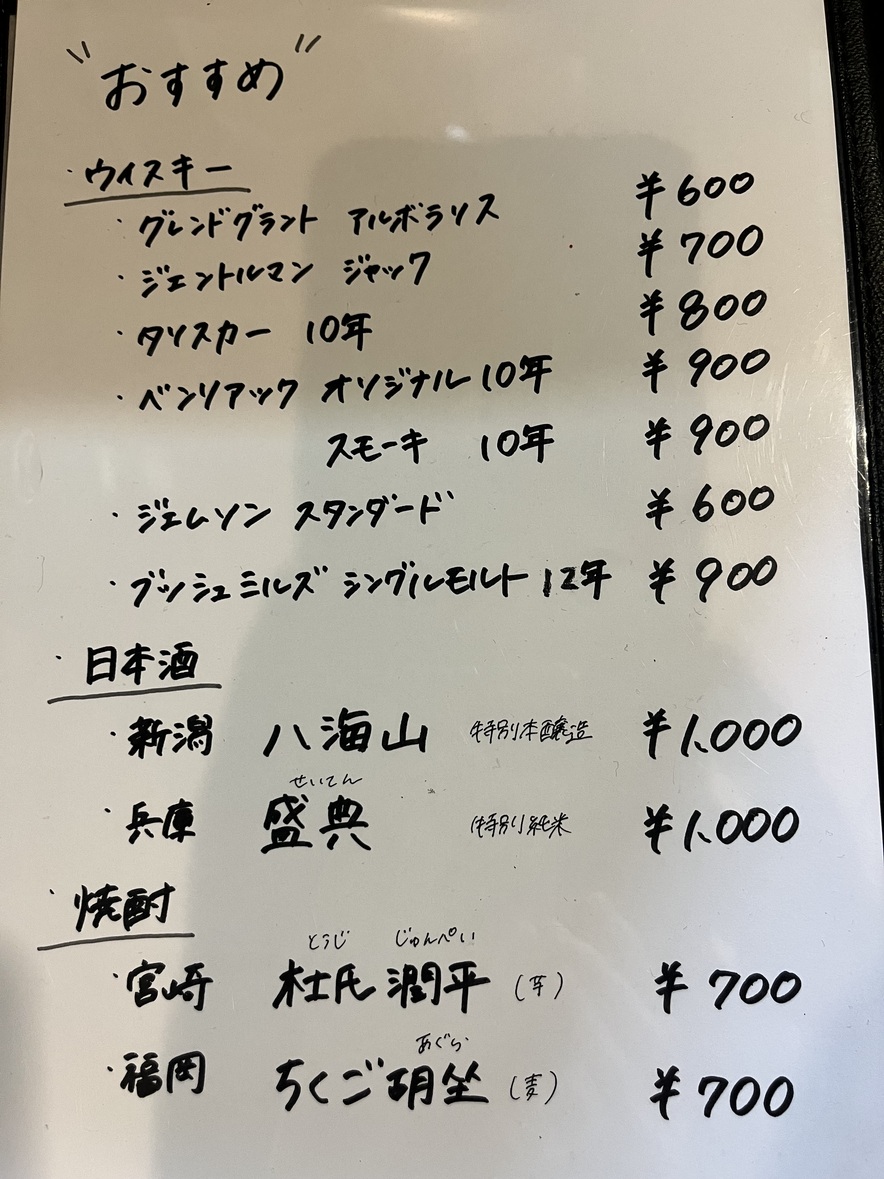 "おすすめ"
・ウイスキー
・グレンドグラント アルボラリス ¥600
・ジェントルマン ジャック ¥700
・タリスカー 10年 ¥800
・ベンリアック オリジナル 10年 ¥900
スモーキ 10年 ¥900
・ジェムソン スタンダード ¥600
・ブッシュミルズ シングルモルト 12年 ¥900
・日本酒
・新潟 八海山 特別本醸造 ¥1,000
せいてん
・兵庫 盛典 特別純米 ¥1,000
・焼酎
とうじ じゅんぺい
・宮崎 杜氏 潤平 (芋) ¥700
あぐら
・福岡 ちくご胡坐 (麦) ¥700